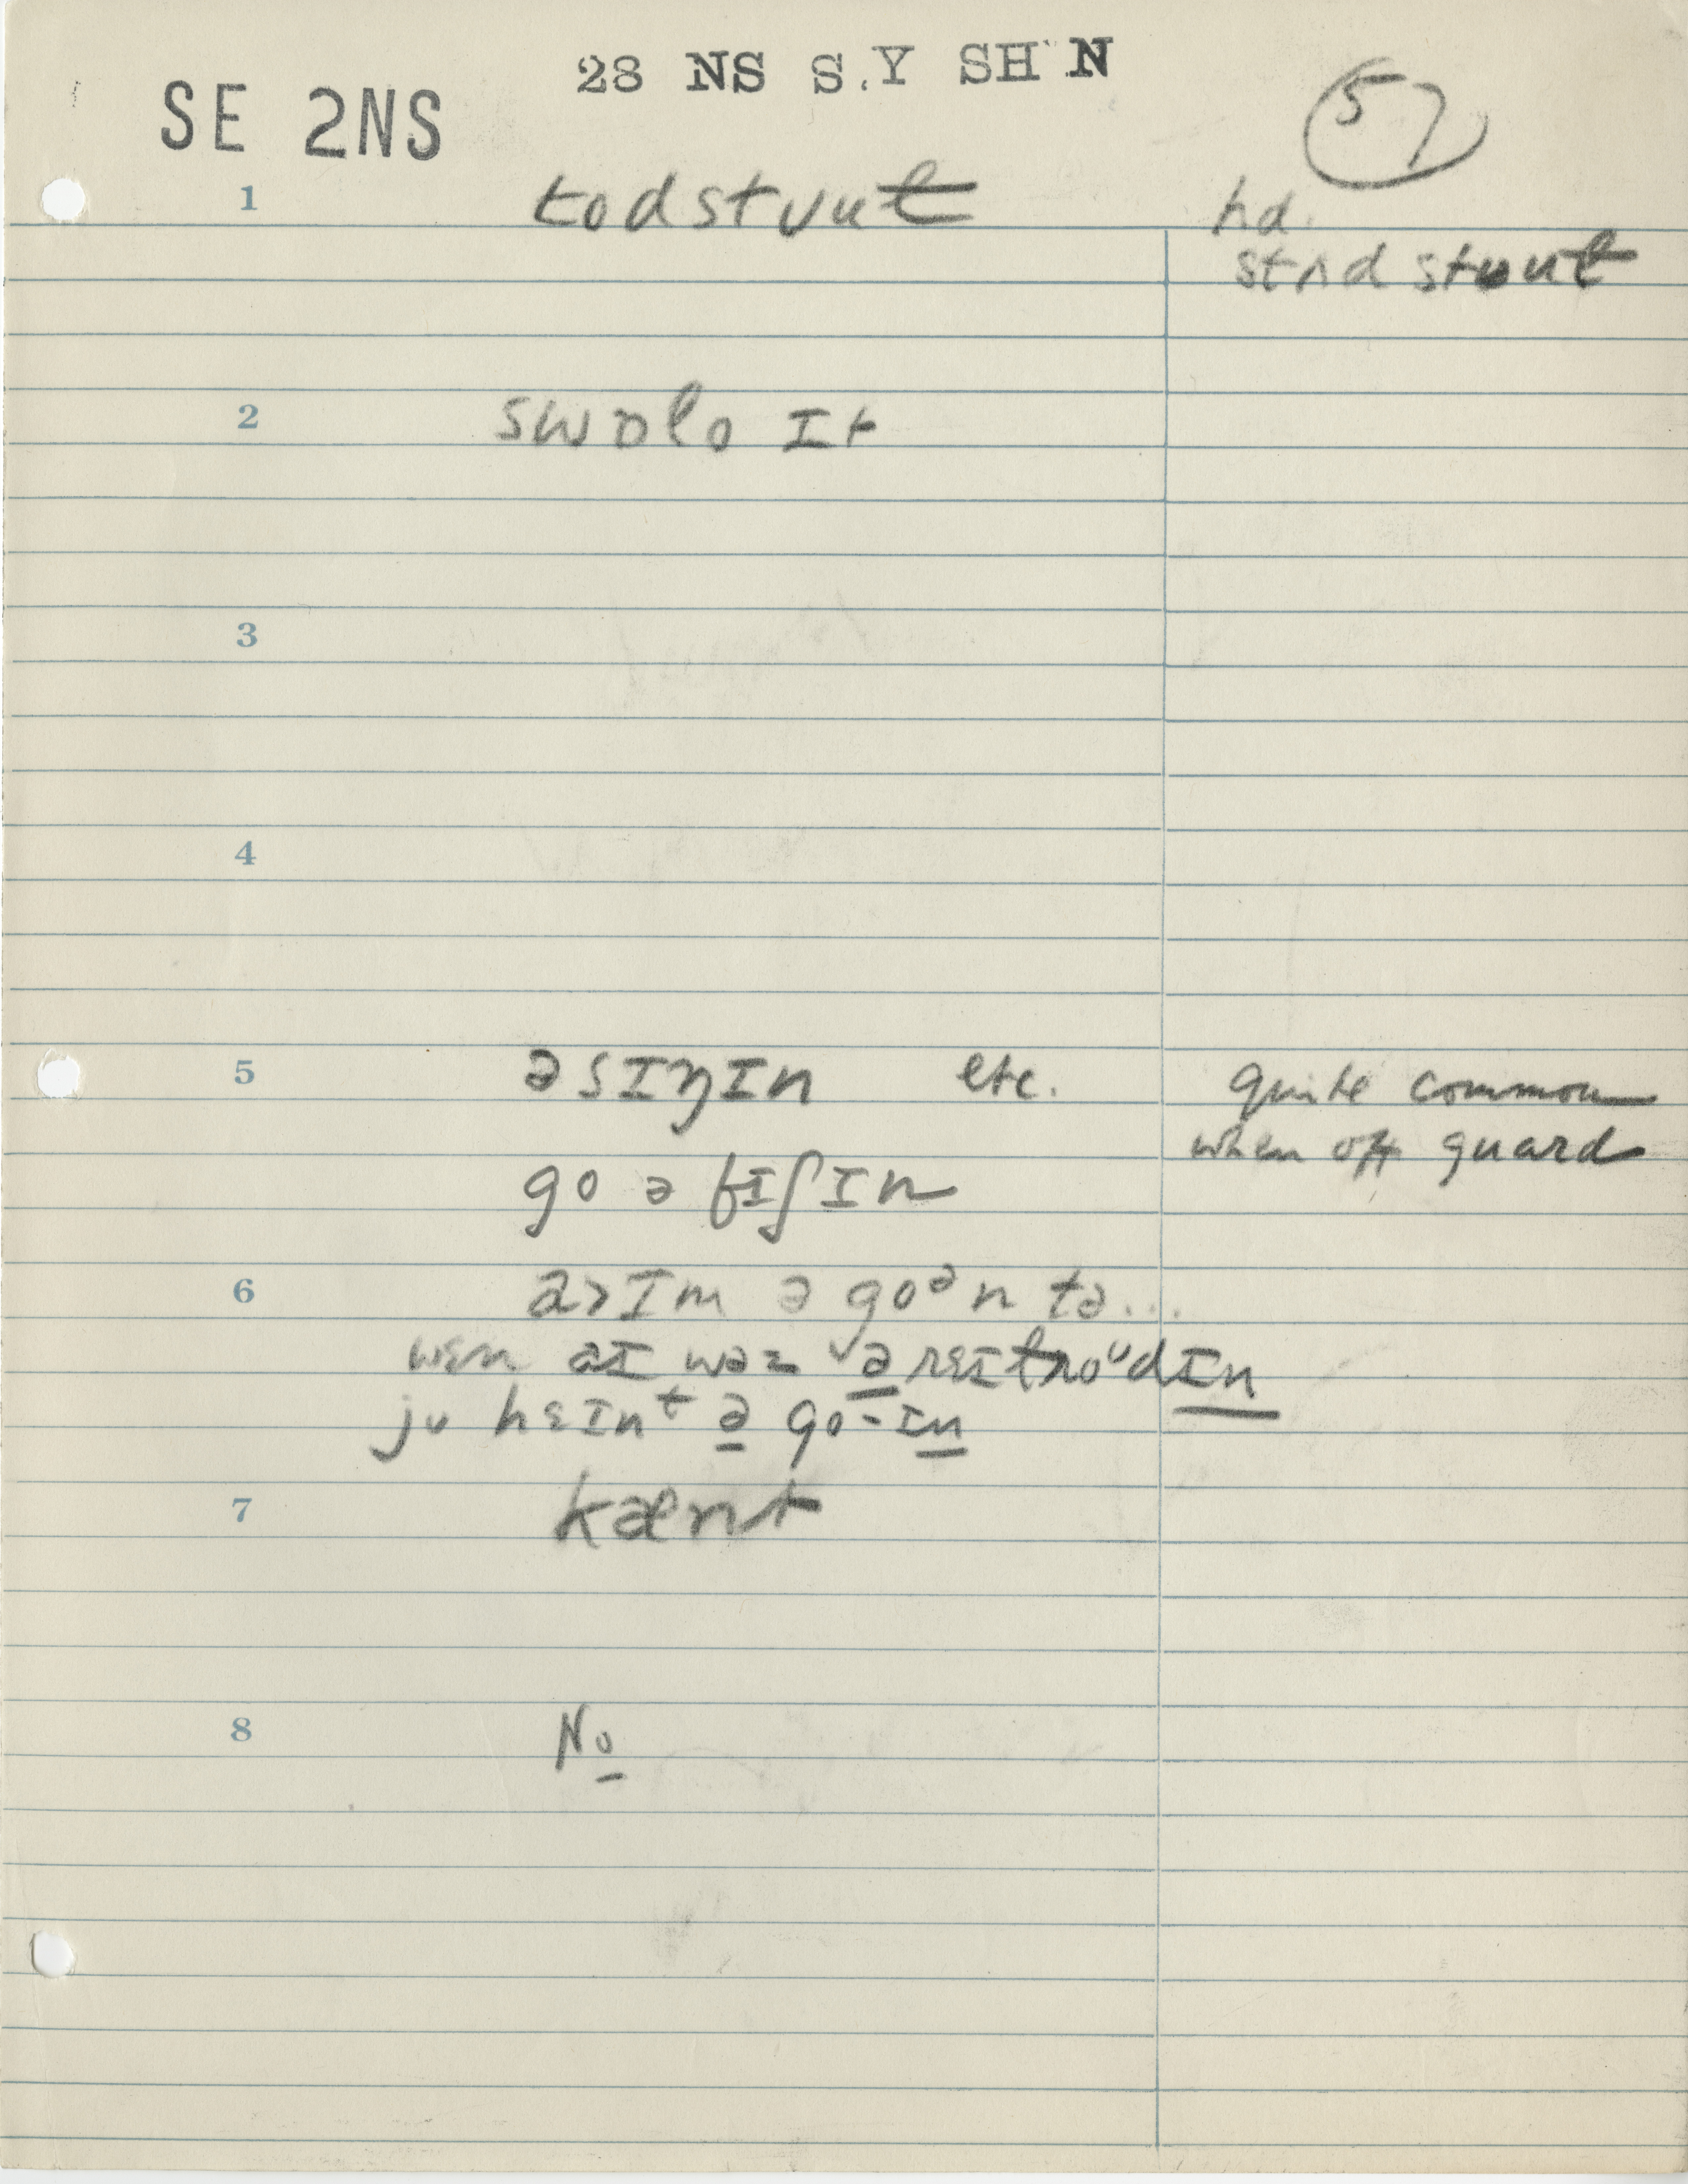 28 NS S.Y SH N
SE 2NS
57
1 todstvut hd.
stʌd stvut
2 swɒlo ɪt
3
4
5 ə sɪŋɪn etc. quite common
when off guard
go ə fɪʃɪn
6 ə go ə n tə...
wɛn aɪ wəz ə
ju hɛɪnt ə go-ɪn
7 kænt
8 No